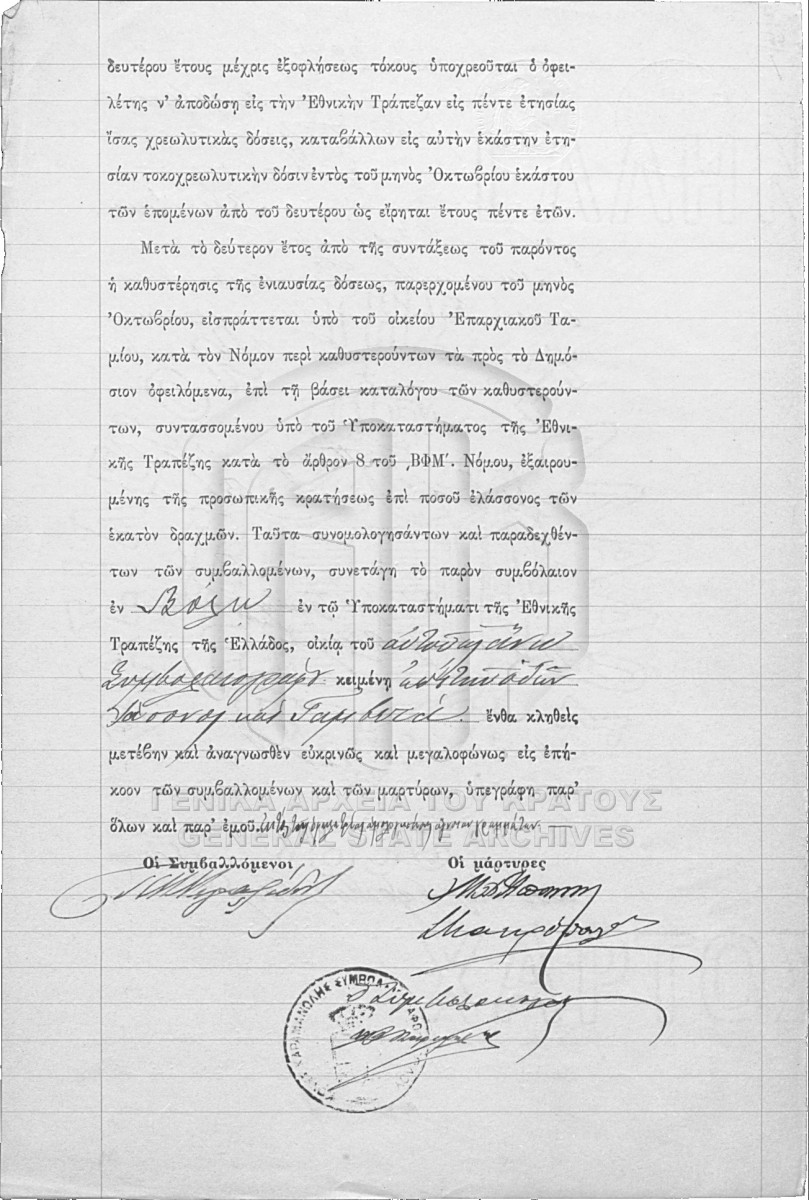 δευτέρου ἔτους μέχρις ἐξοφλήσεως τόκους ὑποχρεοῦται ὁ ὀφει-
λέτης ν' ἀποδώσῃ εἰς τὴν Ἐθνικὴν Τράπεζαν εἰς πέντε ἐτησίας
ἴσας χρεωλυτικὰς δόσεις, καταβάλλων εἰς αὐτὴν ἑκάστην ἐτη-
σίαν τοκοχρεωλυτικὴν δόσιν ἐντὸς τοῦ μηνὸς Ὀκτωβρίου ἑκάστου
τῶν ἑπομένων ἀπὸ τοῦ δευτέρου ὡς εἴρηται ἔτους πέντε ἐτῶν.
Μετὰ τὸ δεύτερον ἔτος ἀπὸ τῆς συντάξεως τοῦ παρόντος
ἡ καθυστέρησις τῆς ἐνιαυσίας δόσεως, παρερχομένου τοῦ μηνὸς
Ὀκτωβρίου, εἰσπράττεται ὑπὸ τοῦ οἰκείου Ἐπαρχιακοῦ Τα-
μίου, κατὰ τὸν Νόμον περὶ καθυστερούντων τὰ πρὸς τὸ Δημό-
σιον ὀφειλόμενα, ἐπὶ τῇ βάσει καταλόγου τῶν καθυστερούν-
των, συντασσομένου ὑπὸ τοῦ Ὑποκαταστήματος τῆς Ἐθνι-
κῆς Τραπέζης κατὰ τὸ ἄρθρον 8 τοῦ ͵ΒΦΜ΄. Νόμου, ἐξαιρου-
μένης τῆς προσωπικῆς κρατήσεως ἐπὶ ποσοῦ ἐλάσσονος τῶν
ἑκατὸν δραχμῶν. Ταῦτα συνομολογησάντων καὶ παραδεχθέν-
των τῶν συμβαλλομένων, συνετάγη τὸ παρὸν συμβόλαιον
ἐν Βόλῳ ἐν τῷ Ὑποκαταστήματι τῆς Ἐθνικῆς
Τραπέζης τῆς Ἑλλάδος, οἰκίᾳ τοῦ
Συμβολαιογράφου κειμένῃ
Ἰάσονος καὶ Γαμβετά. ἔνθα κληθεὶς
μετέβην καὶ ἀναγνωσθὲν εὐκρινῶς καὶ μεγαλοφώνως εἰς ἐπή-
κοον τῶν συμβαλλομένων καὶ τῶν μαρτύρων, ὑπεγράφη παρ'
ΓΕΝΙΚΑ ΑΡΧΕΙΑ ΤΟΥ ΚΡΑΤΟΥΣ
ὅλων καὶ παρ' ἐμοῦ.
GENERAL STATE ARCHIVES
Οἱ Συμβαλλόμενοι Οἱ μάρτυρες
Ὁ Συμβολαιογράφος